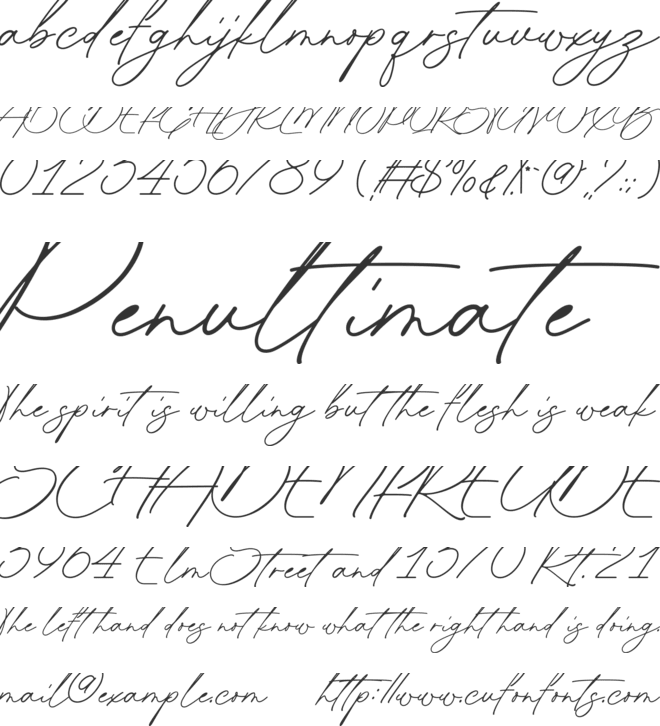 abcdefghijklmnopqrstuvwxyz
ABCDEFGHIJKLMNOPQRSTUVWXYZ
0123456789 (,#$%&!*-@.,?:;)
Penultimate
The spirit is willing but the flesh is weak
SCHADENFREUDE
3964 Elm Street and 1370 Rt. 21
The left hand does not know what the right hand is doing.
mail@example.com http://www.cufonfonts.com